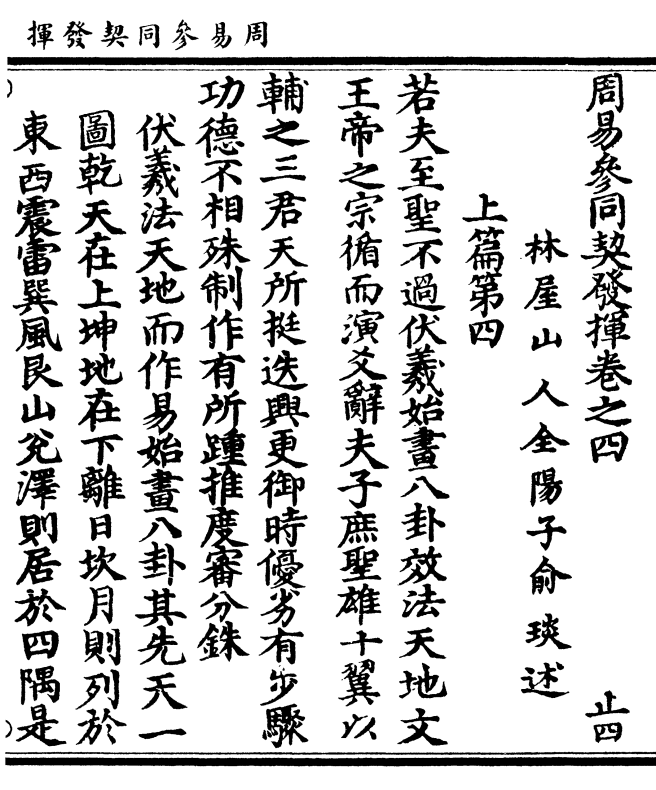 周易參同契發揮
周易參同契發揮卷之四 止四
林屋山人全陽子俞琰述
上篇第四
若夫至聖不過伏羲始畫八卦效法天地文
王帝之宗循而演爻辭夫子庶聖雄十翼以
輔之三君天所挺迭興更御時優劣有步驟
功德不相殊制作有所踵推度審分銖
伏羲法天地而作易始畫八卦其先天一
圖乾天在上坤地在下離日坎月則列於
東西震雷巽風艮山兊澤則居於四隅是